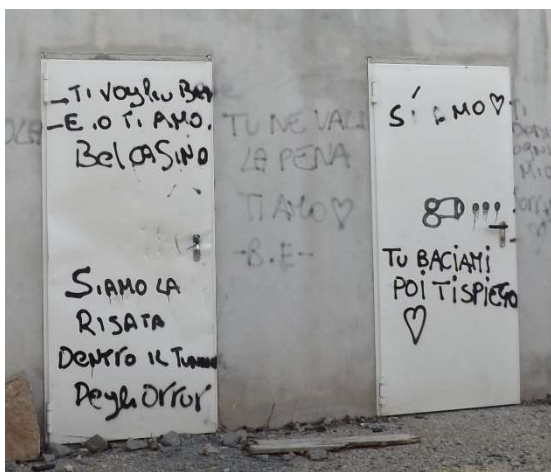 - TI VOgLIU BENE
- E IO TI AMO.
BelCASINO
SIAMO LA
RISATA
DENTRO IL TUNNEL
Degli Orrori
TU NE VALI
LA PENA
TI AMO ♡
-B.E-
TU BACIAMI
POI TI SPIEGO
♡